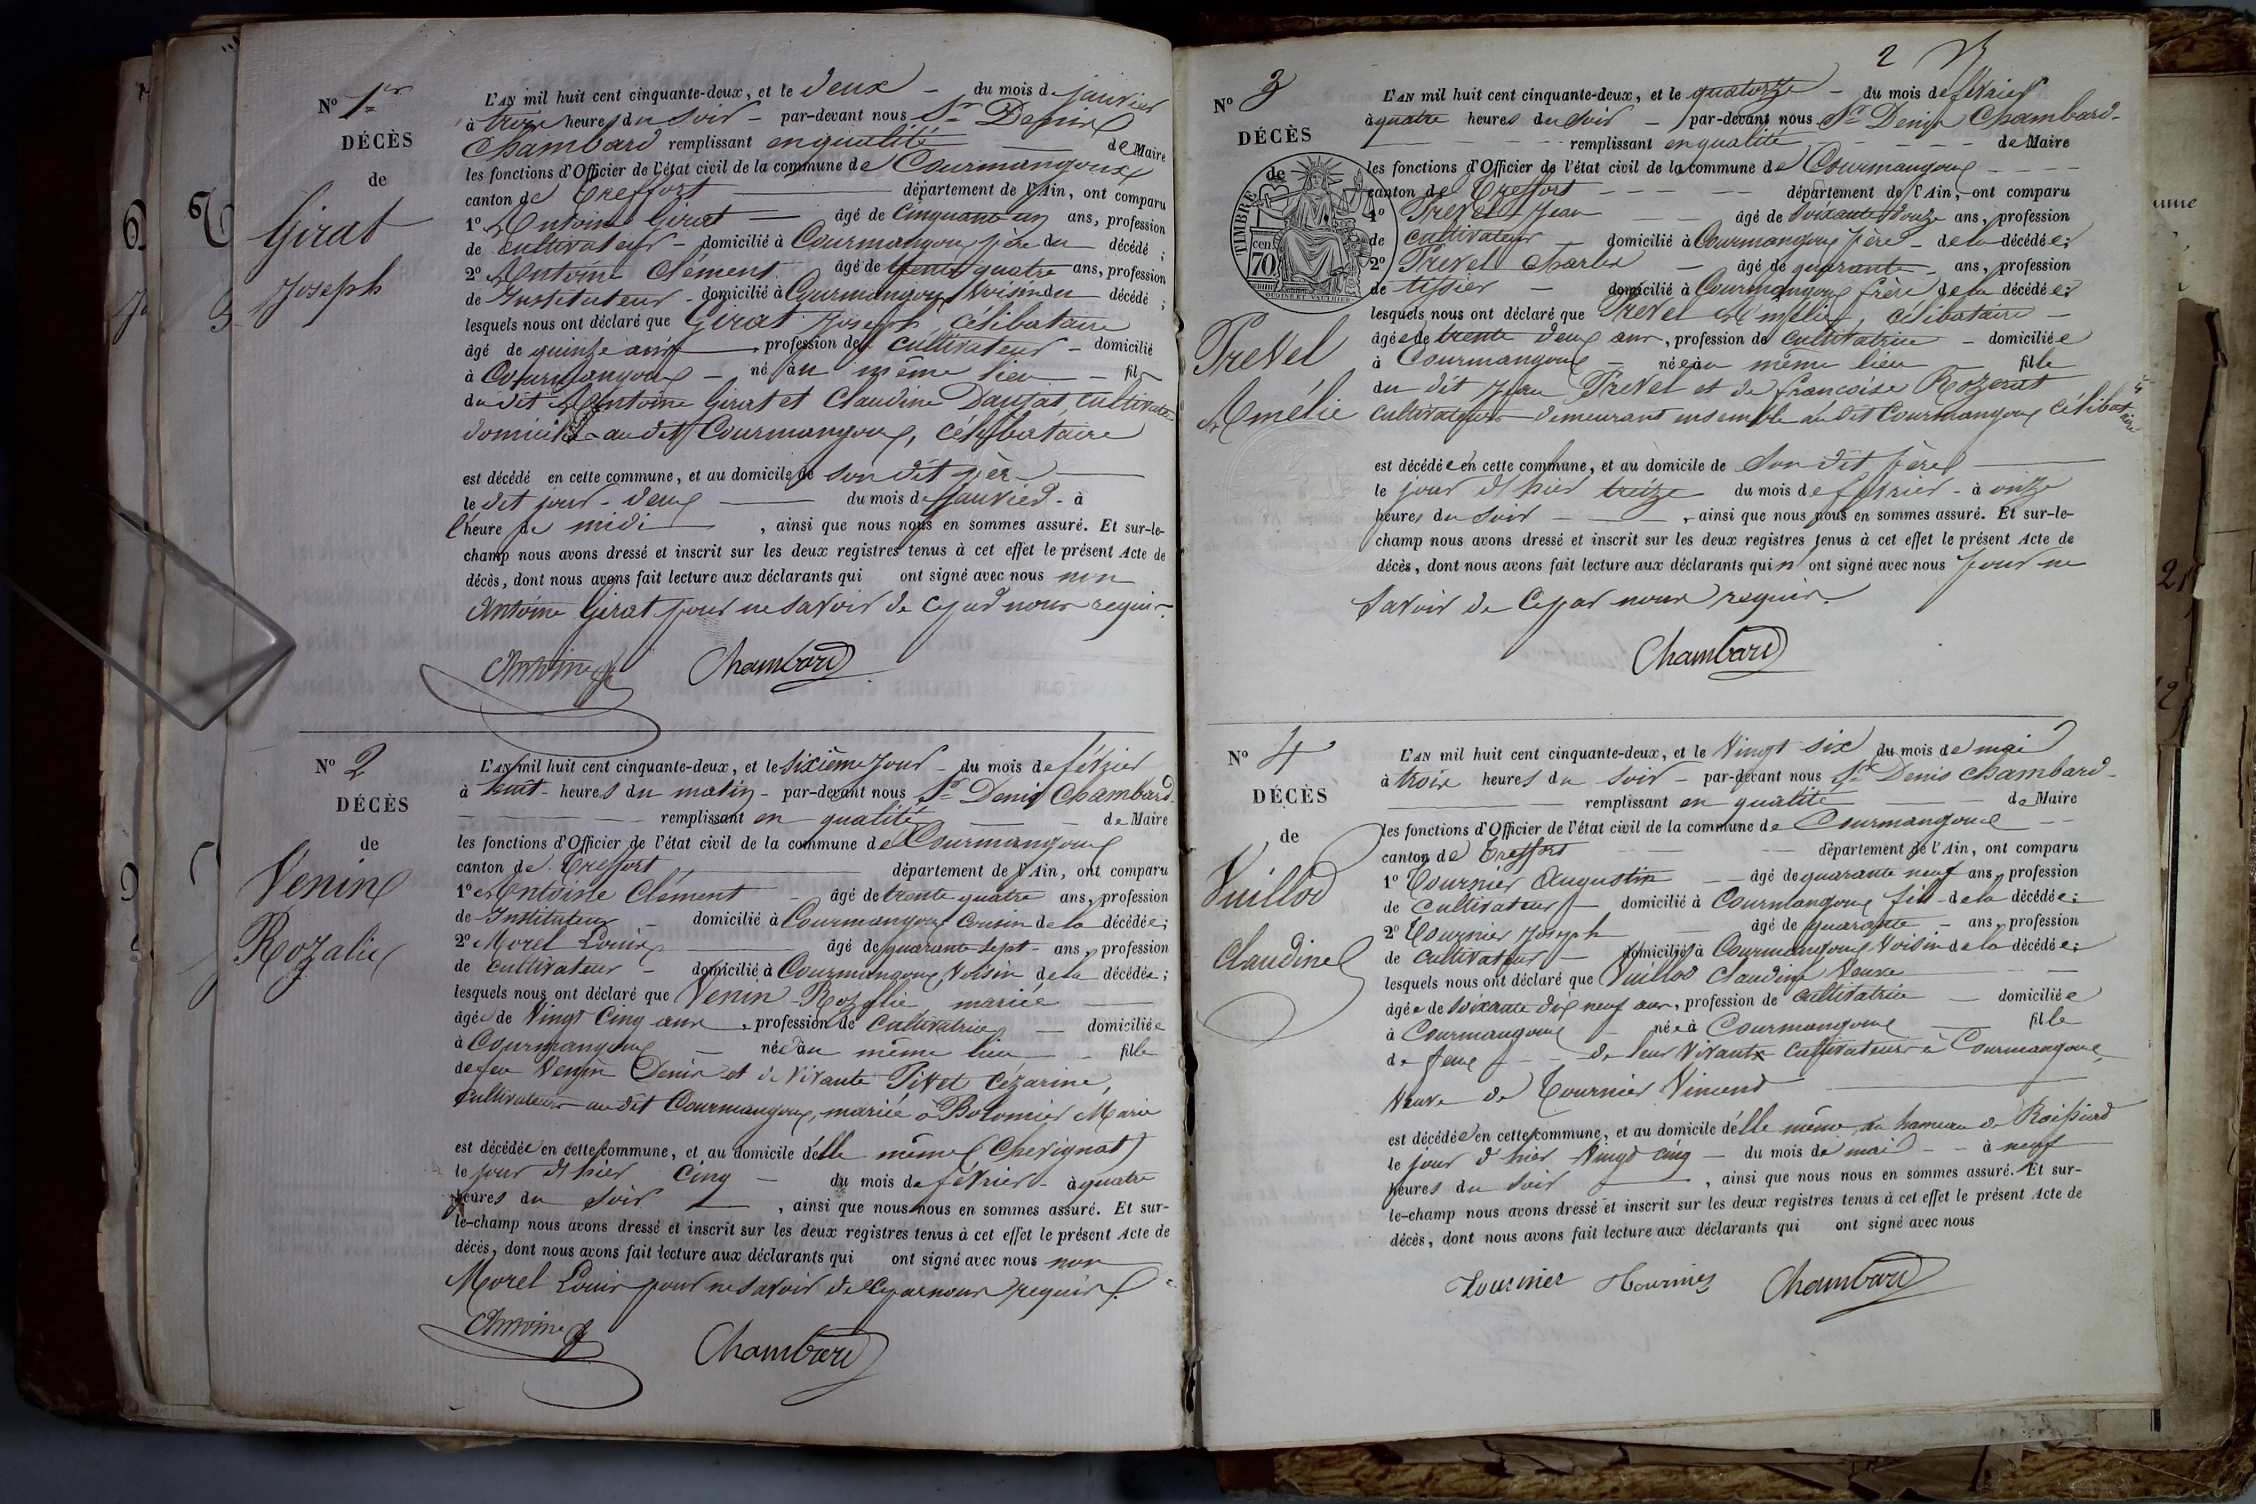 N° 1er
DÉCÈS
de
Girat
Joseph
L'AN mil huit cent cinquante-deux, et le deux - du mois de janvier
à trois heures du soir - par-devant nous Sr Denis
Chambard remplissant en qualité de Maire
les fonctions d'Officier de l'état civil de la commune de Courmangoux
canton de Treffort département de l'Ain, ont comparu
1° Antoine Girat âgé de Cinquante un ans, profession
de cultivateur - domicilié à Courmangoux père du décédé ;
2° Antoine Clément âgé de trente quatre ans, profession
de Instituteur - domicilié à Courmangoux Voisin du décédé ;
lesquels nous ont déclaré que Girat Joseph, célibataire
âgé de quinze ans, profession de cultivateur - domicilié
à Courmangoux - né au même lieu - fils
du dit Antoine Girat et Claudine Daujat, cultivateurs
domiciliés au dit Courmangoux, célibataire
est décédé en cette commune, et au domicile de son dit père
le dit jour - deux du mois de Janvier - à
l'heure de midi, ainsi que nous nous en sommes assuré. Et sur-le-
champ nous avons dressé et inscrit sur les deux registres tenus à cet effet le présent Acte de
décès, dont nous avons fait lecture aux déclarants qui ont signé avec nous non
Antoine Girat pour ne savoir de ce par nous requis.
Antoine Chambard
N° 2
DÉCÈS
de
Venin
Rozalie
L'AN mil huit cent cinquante-deux, et le sixième jour - du mois de février
à huit - heures du matin - par-devant nous Sr Denis Chambard
remplissant en qualité de Maire
les fonctions d'Officier de l'état civil de la commune de Courmangoux
canton de Treffort département de l'Ain, ont comparu
1° Antoine Clément âgé de trente quatre ans, profession
de Instituteur - domicilié à Courmangoux Cousin de la décédée ;
2° Morel Louis âgé de quarante sept - ans, profession
de cultivateur - domicilié à Courmangoux, Voisin de la décédée ;
lesquels nous ont déclaré que Venin Rozalie mariée
âgée de Vingt Cinq ans, profession de cultivatrice - domiciliée
à Courmangoux - née au même lieu - fille
de feu Venin Denis et de Vivante Pitet Cézarine,
cultivateurs au dit Courmangoux, mariée à Bolomier Marie
est décédée en cette commune, et au domicile d'elle même (Chevignat)
le jour d'hier Cinq - du mois de février - à quatre
heures du soir, ainsi que nous nous en sommes assuré. Et sur-
le-champ nous avons dressé et inscrit sur les deux registres tenus à cet effet le présent Acte de
décès, dont nous avons fait lecture aux déclarants qui ont signé avec nous non
Morel Louis pour ne savoir de ce par nous requis.
Antoine Chambard
2
N° 3
DÉCÈS
de
TIMBRE
70 cen
OUDINÉ ET VAUTHIER
Prevel
Amélie
L'AN mil huit cent cinquante-deux, et le quatorze - du mois de février
à quatre heures du soir - par-devant nous Sr Denis Chambard -
remplissant en qualité de Maire
les fonctions d'Officier de l'état civil de la commune de Courmangoux
canton de Treffort département de l'Ain, ont comparu
1° Prevel Jean âgé de soixante douze ans, profession
de cultivateur domicilié à Courmangoux père - de la décédée ;
2° Prevel Charles - âgé de quarante - ans, profession
de tissier - domicilié à Courmangoux frère de la décédée ;
lesquels nous ont déclaré que Prevel Amélie, célibataire -
âgée de trente deux ans, profession de cultivatrice - domiciliée
à Courmangoux - née au même lieu fille
du dit Jean Prevel et de françoise Rozerat
cultivateurs demeurant ensemble au dit Courmangoux célibataire
est décédée en cette commune, et au domicile de son dit père
le jour d'hier treize du mois de février - à onze
heures du soir, ainsi que nous nous en sommes assuré. Et sur-le-
champ nous avons dressé et inscrit sur les deux registres tenus à cet effet le présent Acte de
décès, dont nous avons fait lecture aux déclarants qui n'ont signé avec nous pour ne
savoir de ce par nous requis.
Chambard
N° 4
DÉCÈS
de
Vuillod
Claudine
L'AN mil huit cent cinquante-deux, et le Vingt six du mois de mai
à trois heures du soir - par-devant nous Sr Denis Chambard -
remplissant en qualité de Maire
les fonctions d'Officier de l'état civil de la commune de Courmangoux
canton de Treffort département de l'Ain, ont comparu
1° Tournier Augustin âgé de quarante neuf ans, profession
de cultivateur - domicilié à Courmangoux fils - de la décédée ;
2° Tournier Joseph âgé de quarante - ans, profession
de cultivateur - domicilié à Courmangoux Voisin de la décédée ;
lesquels nous ont déclaré que Vuillod Claudine Veuve
âgée de soixante dix neuf ans, profession de cultivatrice - domiciliée
à Courmangoux - née à Courmangoux fille
de feux - - de leur Vivant cultivateurs à Courmangoux
Veuve de Tournier Vincend
est décédée en cette commune, et au domicile d'elle même au hameau de Roissiard
le jour d'hier Vingt cinq - du mois de mai - à neuf
heures du soir, ainsi que nous nous en sommes assuré. Et sur-
le-champ nous avons dressé et inscrit sur les deux registres tenus à cet effet le présent Acte de
décès, dont nous avons fait lecture aux déclarants qui ont signé avec nous
Tournier Tournier Chambard